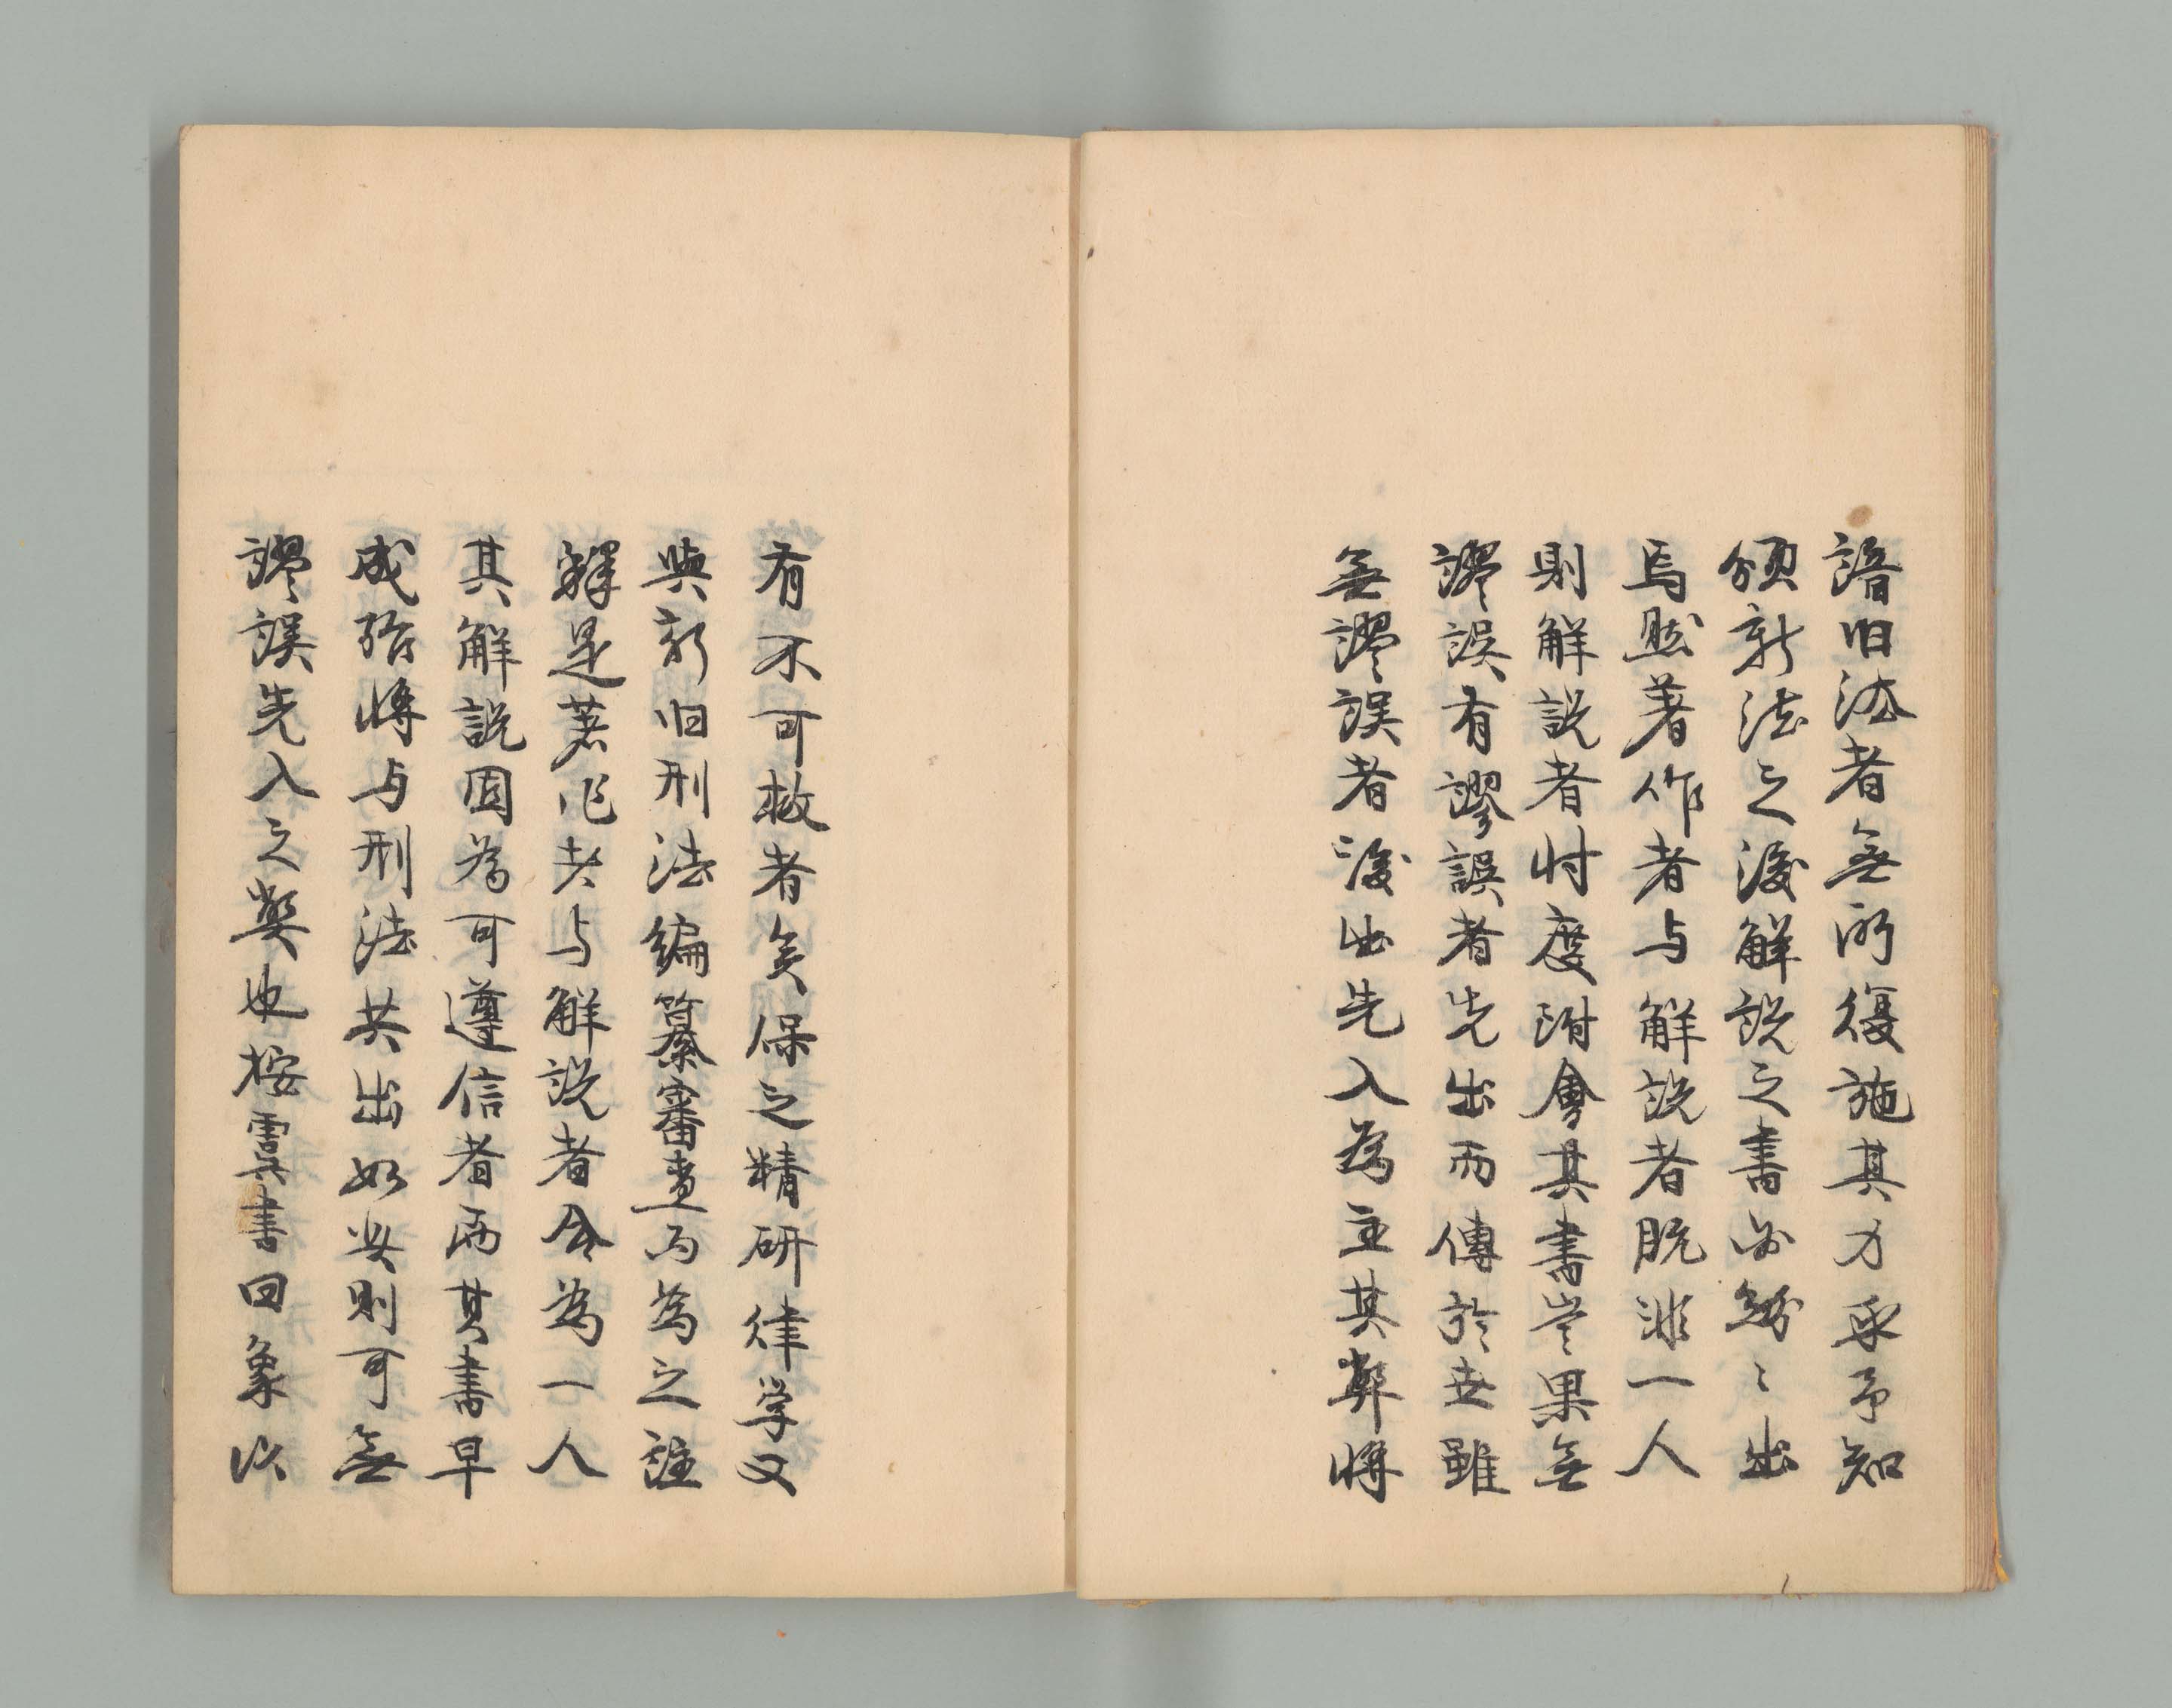 諳旧法者無所復施其力乎予知
頒新法之後解説之書必紛〻出
焉然著作者与解説者既非一人
則解説者忖度附會其書豈果無
謬誤有謬誤者先出而傳於世雖
無謬誤者後出先入為主其弊將
有不可救者矣保之精研律学又
與新旧刑法編纂審査而為之註
釋是著作者与解説者合為一人
其解説固為可遵信者而其書早
成殆將与刑法共出如此則可無
謬誤先入之弊也按虞書曰象以